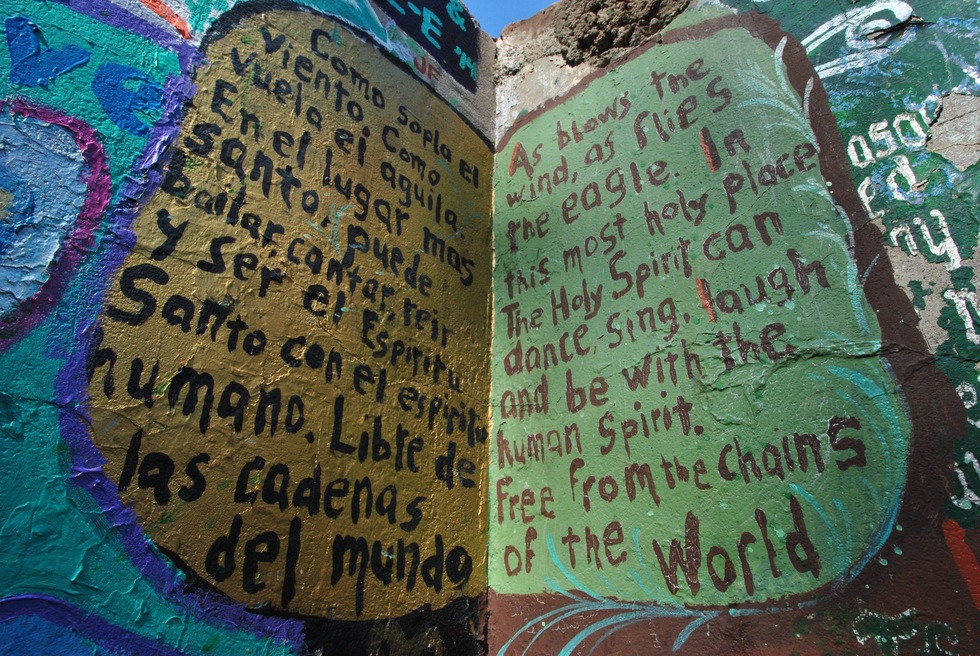 Como sopla el
viento. Como
vuela el aguila.
En el lugar mas
santo, puede
bailar, cantar, reir
y ser el Espiritu
Santo con el espiritu
humano. Libre de
las cadenas
del mundo
As blows the
wind, as flies
the eagle. In
this most holy place
The Holy Spirit can
dance, sing, laugh
and be with the
human Spirit.
Free from the chains
of the World